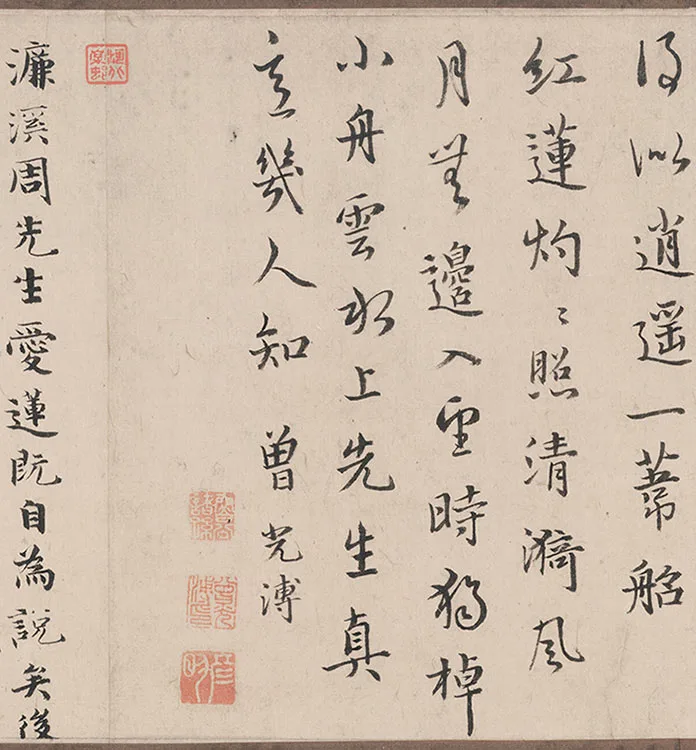 得似逍遥一葦船
紅蓮灼〻照清漪風
月無邊入望時獨棹
小舟雲水上先生真
意幾人知 曾光溥
濂溪周先生愛蓮既自為說矣後